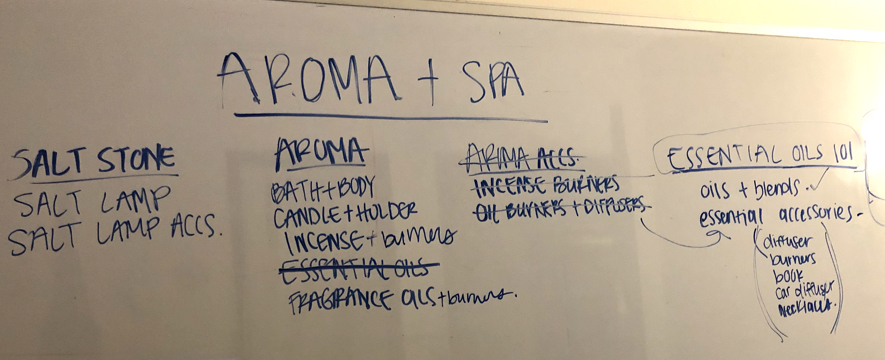 AROMA + SPA
SALT STONE
SALT LAMP
SALT LAMP ACCS.
AROMA
BATH+BODY
CANDLE+HOLDER
INCENSE+burners
ESSENTIAL OILS
FRAGRANCE OILS+burners.
AROMA ACCS.
INCENSE BURNERS
OIL BURNERS + DIFFUSERS
ESSENTIAL OILS 101
oils + blends
essential accessories
diffuser
burners
book
car diffuser
Necklaces.